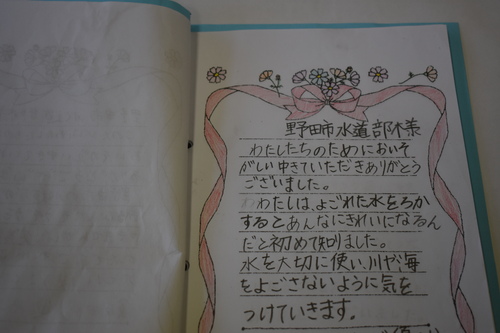 野田市水道部様
わたしたちのためにおいそ
がしい中きていただきありがとう
ございました。
わたしは、よごれた水をろか
するとあんなにきれいになるん
だと初めて知りました。
水を大切に使い、川や、海
をよごさないように気を
つけていきます。